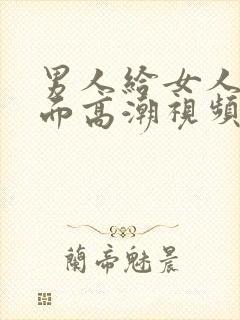 男人給女人
而高潮視頻
蘭帝魅晨